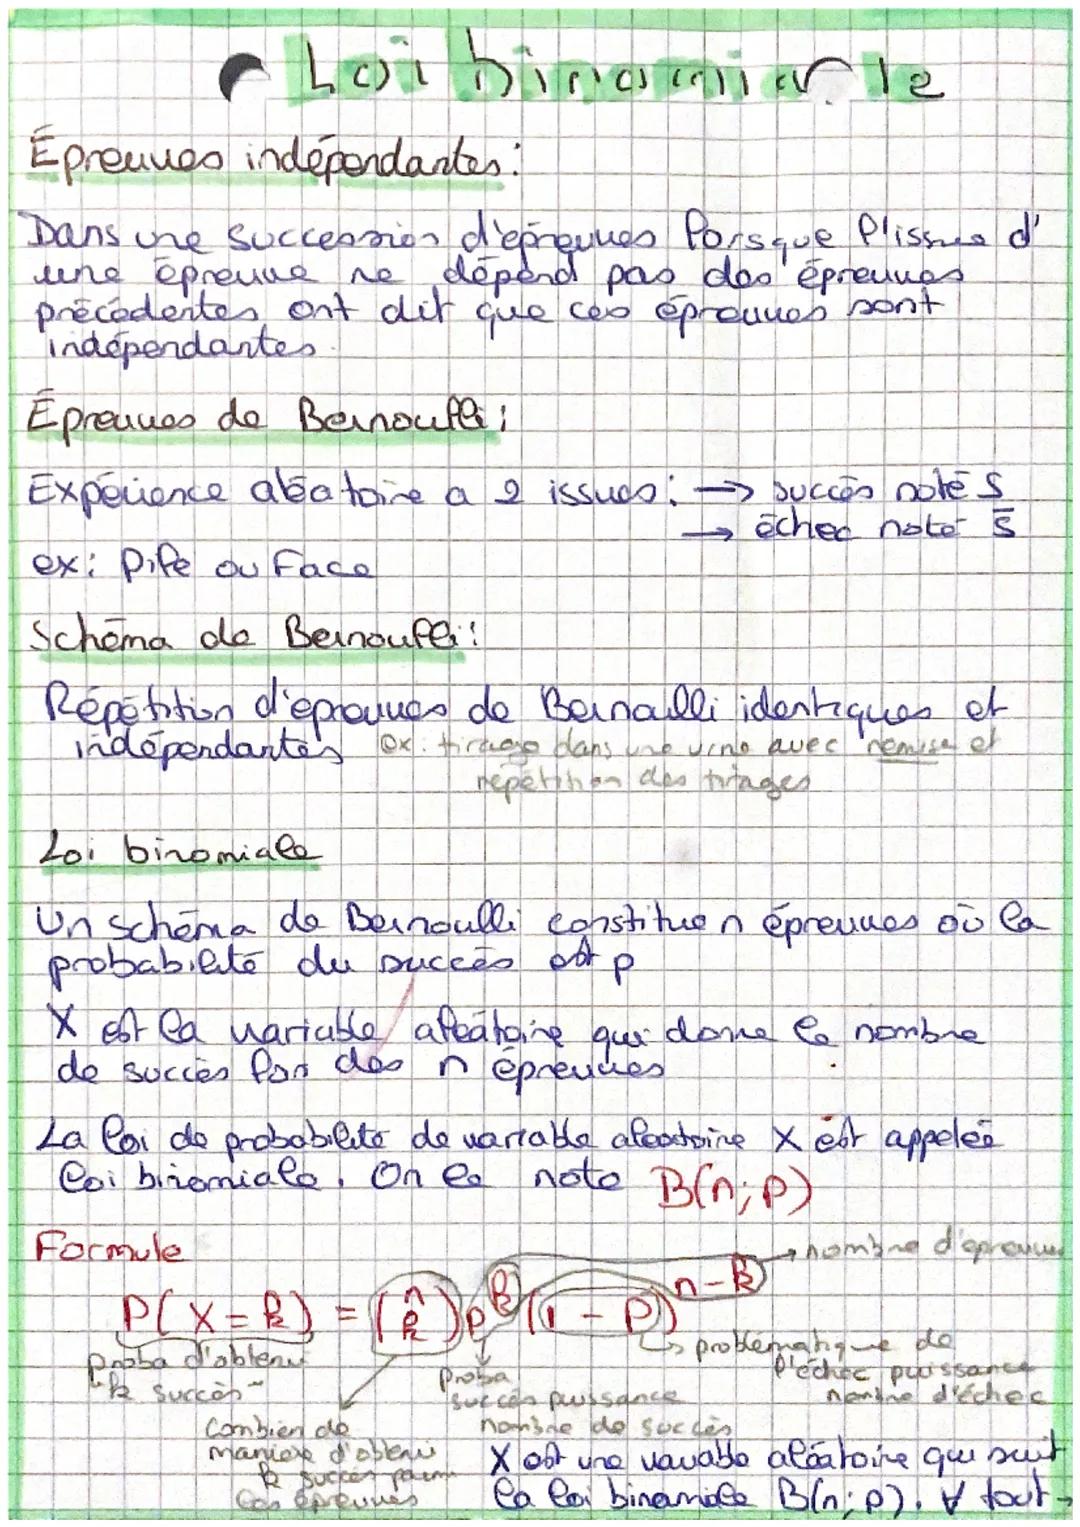 Loi binomiale
Épreuves indépendantes:
Dans une succession d'épreuves lorsque l'issue d'
une épreuve ne dépend pas des épreuves
précédentes ont dit que ces épreuves sont
indépendantes.
Épreuves de Bernoulli:
Expérience aléatoire a 2 issues: → succès noté S
→ échec noté S̅
ex: Pile ou Face
Schéma de Bernoulli:
Répétition d'épreuves de Bernoulli identiques et
indépendantes ex: tirage dans une urne avec remise et
répétition des tirages
Loi binomiale
Un schéma de Bernoulli constitue n épreuves où la
probabilité du succès est p
X est la variable aléatoire qui donne le nombre
de succès lors des n épreuves
La loi de probabilité de variable aléatoire X est appelée
loi binomiale. On la note B(n; p)
Formule
→ nombre d'épreuves
P(X = k) = (n k) p^k (1 - p)^n-k
proba d'obtenir
"k succès"
proba
succès puissance
nombre de succès
problématique de
l'échec puissance
nombre d'échec
Combien de
manière d'obtenir
k succès parmi
les épreuves
X est une variable aléatoire qui suit
la loi binomiale B(n; p). ∀ tout →